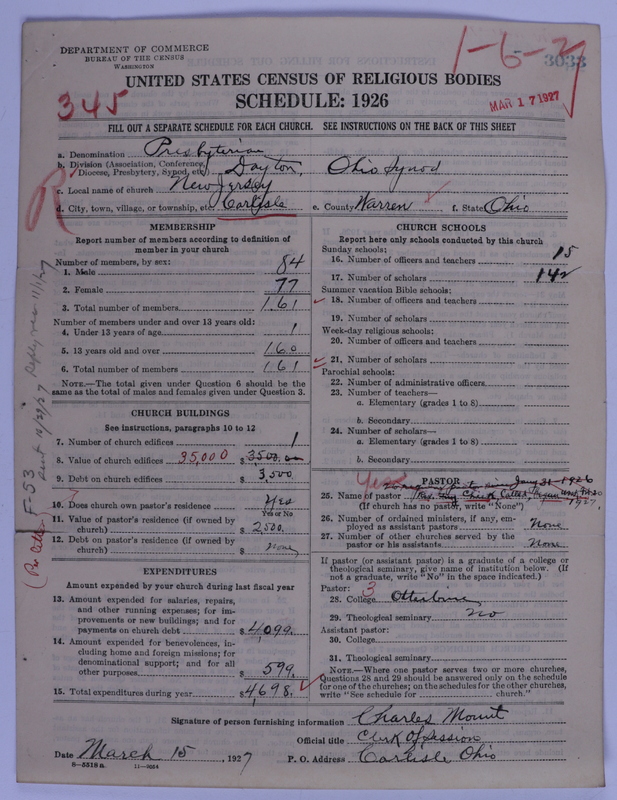 DEPARTMENT OF COMMERCE
BUREAU OF THE CENSUS
WASHINGTON
1-6-2
3033
UNITED STATES CENSUS OF RELIGIOUS BODIES
345
SCHEDULE: 1926
MAR 17 1927
FILL OUT A SEPARATE SCHEDULE FOR EACH CHURCH. SEE INSTRUCTIONS ON THE BACK OF THIS SHEET
a. Denomination Presbyterian
b. Division (Association, Conference, Diocese, Presbytery, Synod, etc.) Dayton, Ohio Synod
c. Local name of church New Jersey
d. City, town, village, or township, etc. Carlisle e. County Warren f. State Ohio
R
MEMBERSHIP
Report number of members according to definition of member in your church
Number of members, by sex:
1. Male 84
2. Female 77
3. Total number of members 161
Number of members under and over 13 years old:
4. Under 13 years of age 1
5. 13 years old and over 160
6. Total number of members 161
NOTE.—The total given under Question 6 should be the same as the total of males and females given under Question 3.
CHURCH BUILDINGS
See instructions, paragraphs 10 to 12
7. Number of church edifices 1
8. Value of church edifices 35,000 $ 3500.00
9. Debt on church edifices $ 3,500
10. Does church own pastor's residence? Yes
Yes or No
11. Value of pastor's residence (if owned by church) $ 2500.
12. Debt on pastor's residence (if owned by church) $ none
EXPENDITURES
Amount expended by your church during last fiscal year
13. Amount expended for salaries, repairs, and other running expenses; for improvements or new buildings; and for payments on church debt $ 4099.
14. Amount expended for benevolences, including home and foreign missions; for denominational support; and for all other purposes $ 599.
15. Total expenditures during year $ 4698.
CHURCH SCHOOLS
Report here only schools conducted by this church
Sunday schools:
16. Number of officers and teachers 15
17. Number of scholars 142
Summer vacation Bible schools:
18. Number of officers and teachers
19. Number of scholars
Week-day religious schools:
20. Number of officers and teachers
21. Number of scholars
Parochial schools:
22. Number of administrative officers
23. Number of teachers—
a. Elementary (grades 1 to 8)
b. Secondary
24. Number of scholars—
a. Elementary (grades 1 to 8)
b. Secondary
PASTOR
Yes
pastor since Jany 31-1926
25. Name of pastor Rev.
(If church has no pastor, write "None")
1927.
26. Number of ordained ministers, if any, employed as assistant pastors None
27. Number of other churches served by the pastor or his assistants None
If pastor (or assistant pastor) is a graduate of a college or theological seminary, give name of institution below. (If not a graduate, write "No" in the space indicated.)
Pastor: 3
28. College Otterbein
29. Theological seminary No
Assistant pastor:
30. College
31. Theological seminary
NOTE.—Where one pastor serves two or more churches, Questions 28 and 29 should be answered only on the schedule for one of the churches; on the schedules for the other churches, write "See schedule for church."
Signature of person furnishing information Charles Mount
Official title Clerk Of Session
Date March 15, 1927 P. O. Address Carlisle Ohio
8-5518 a 11-2054
F-53
Reply rec